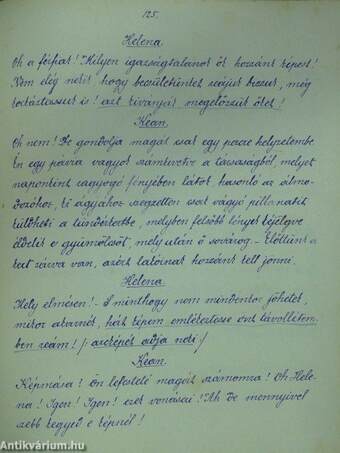 125.
Helena
Oh a férfiat! Milyen igazságtalanok ők hozzánk képest!
Nem elég nekik, hogy becsületünket szájuk veszi, még
kockáztassuk is! azt kivánják megelőzzük őket!
Kean.
Oh nem! De gondolja magát csak egy percre helyzetembe
Én egy párja vagyok számüzve a társaságból, melyet
naponként ragyogó fényében látok, hasonló az álmo-
dozóhoz, ki ágyához szegzetten csak vágyó pillanatit
küldheti a tündérkertbe, melyben felsőbb lények kéjelegve
élvezik a gyümölcsöt, mely után ő sovárog. – Előttünk a
kert zárva van, azért laknak hozzánk kell jönni.
Helena.
Mely elmésen! – S minthogy nem mindenkor jöhetek,
mikor akarnék, hát képem emlékeztesse önt távollétem-
ben reám! / arczképét adja neki /
Kean.
Képmása! Ön lefesteté magát számomra! Oh Hele-
na! Igen! Igen! ezek vonásai! Ah de mennyivel
szebb kegyed e képnél!
Antikvárium.hu